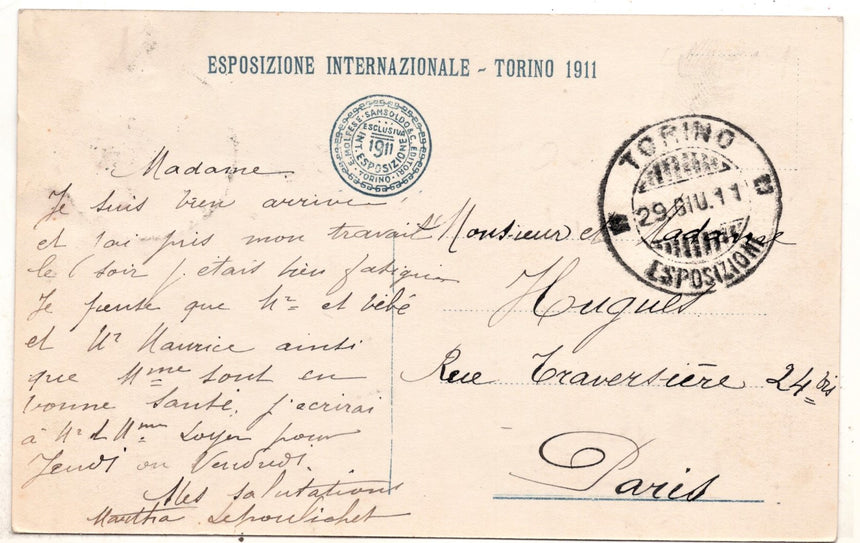 ESPOSIZIONE INTERNAZIONALE - TORINO 1911
E. MOLFESE. SANSOLDO & C. EDITORI. TORINO.
ESCLUSIVA
1911
INT. ESPOSIZIONE
TORINO
29 GIU. 11
ESPOSIZIONE
Madame
Je suis bien arrivée
et j'ai pris mon travail
le soir j'étais bien
Je pense que Mr et bébé
et Mr Maurice ainsi
que Mme sont en
bonne santé, j'ecrirai
à Mr et Mme Loyer pour
Jeudi ou Vendredi
Mes salutations
Martha Lepoulichet
Monsieur et Madame
Hugues
Rue Traversière 24 bis
Paris